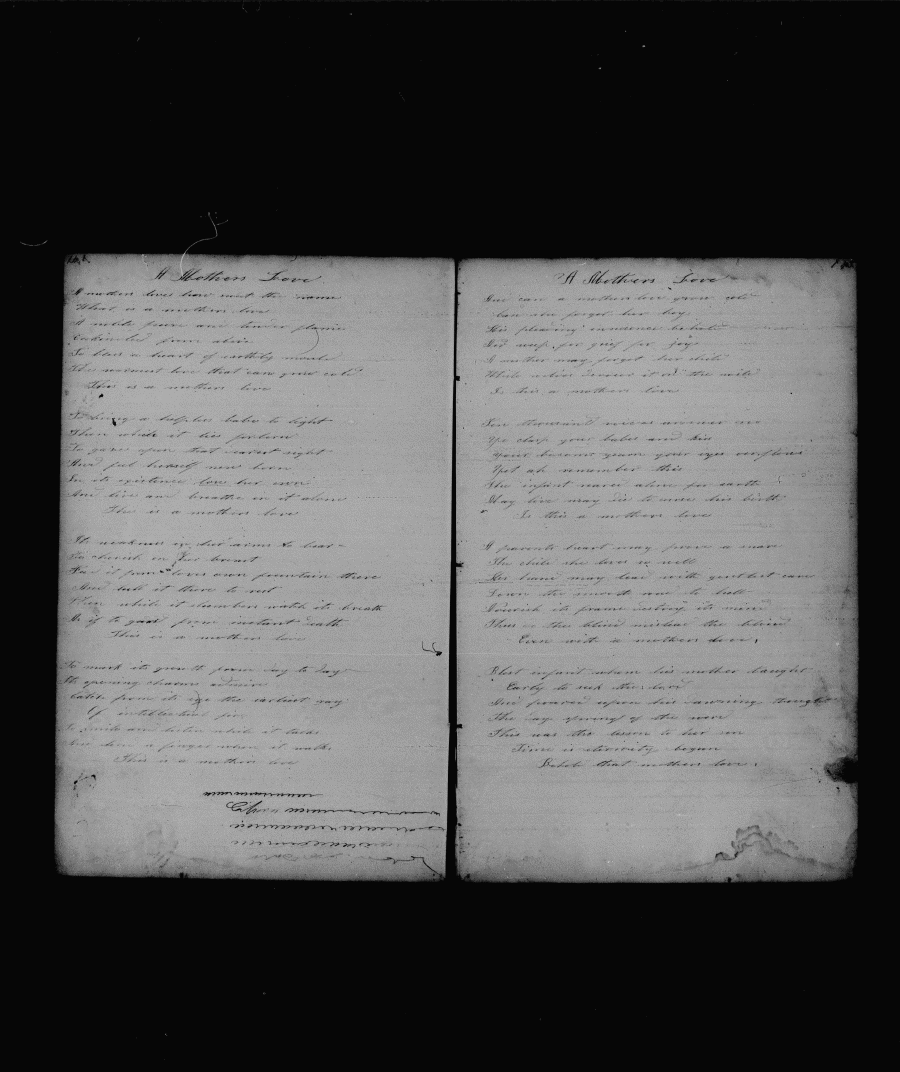 A Mothers Love
A mothers love how sweet the name
What is a mothers love
A noble pure and tender flame
Enkindled from above
To bless a heart of earthly mould
The warmest love that can grow cold
This is a mothers love
To bring a helpless babe to light
Then while it lies forlorn
To gaze upon that dearest sight
And feel herself new born
In its existence lose her own
And live and breathe in it alone
This is a mothers love
Its weakness in her arms to bear
To cherish on her breast
Feed it from loves own fountain there
And lull it there to rest
Then while it slumbers watch its breath
As if to guard from instant death
This is a mothers love
To mark its growth from day to day
Its opening charms admire
Catch from its eye the earliest ray
Of intellectual fire
To smile and listen while it talks
And lend a finger when it walks
This is a mothers love
A Mothers Love
And can a mothers love grow cold
Can she forget her boy
His pleading innocence behold
Nor weep for grief for joy
A mother may forget her child
While wolves devour it on the wild
Is this a mothers love
Ten thousand voices answer no
Ye clasp your babes and kiss
Your bosoms yearn your eyes overflow
Yet ah remember this
The infant reared alone for earth
May live may die to curse his birth
Is this a mothers love
A parents heart may prove a snare
The child she loves so well
Her hand may lead with gentlest care
Down the smooth road to hell
Nourish its frame destroy its mind
Thus do the blind mislead the blind
Even with a mothers love
Blest infant whom his mother taught
Early to seek the lord
And poured upon his dawning thought
The day spring of the word
This was the lesson to her son
Time is eternity begun
Behold that mothers love